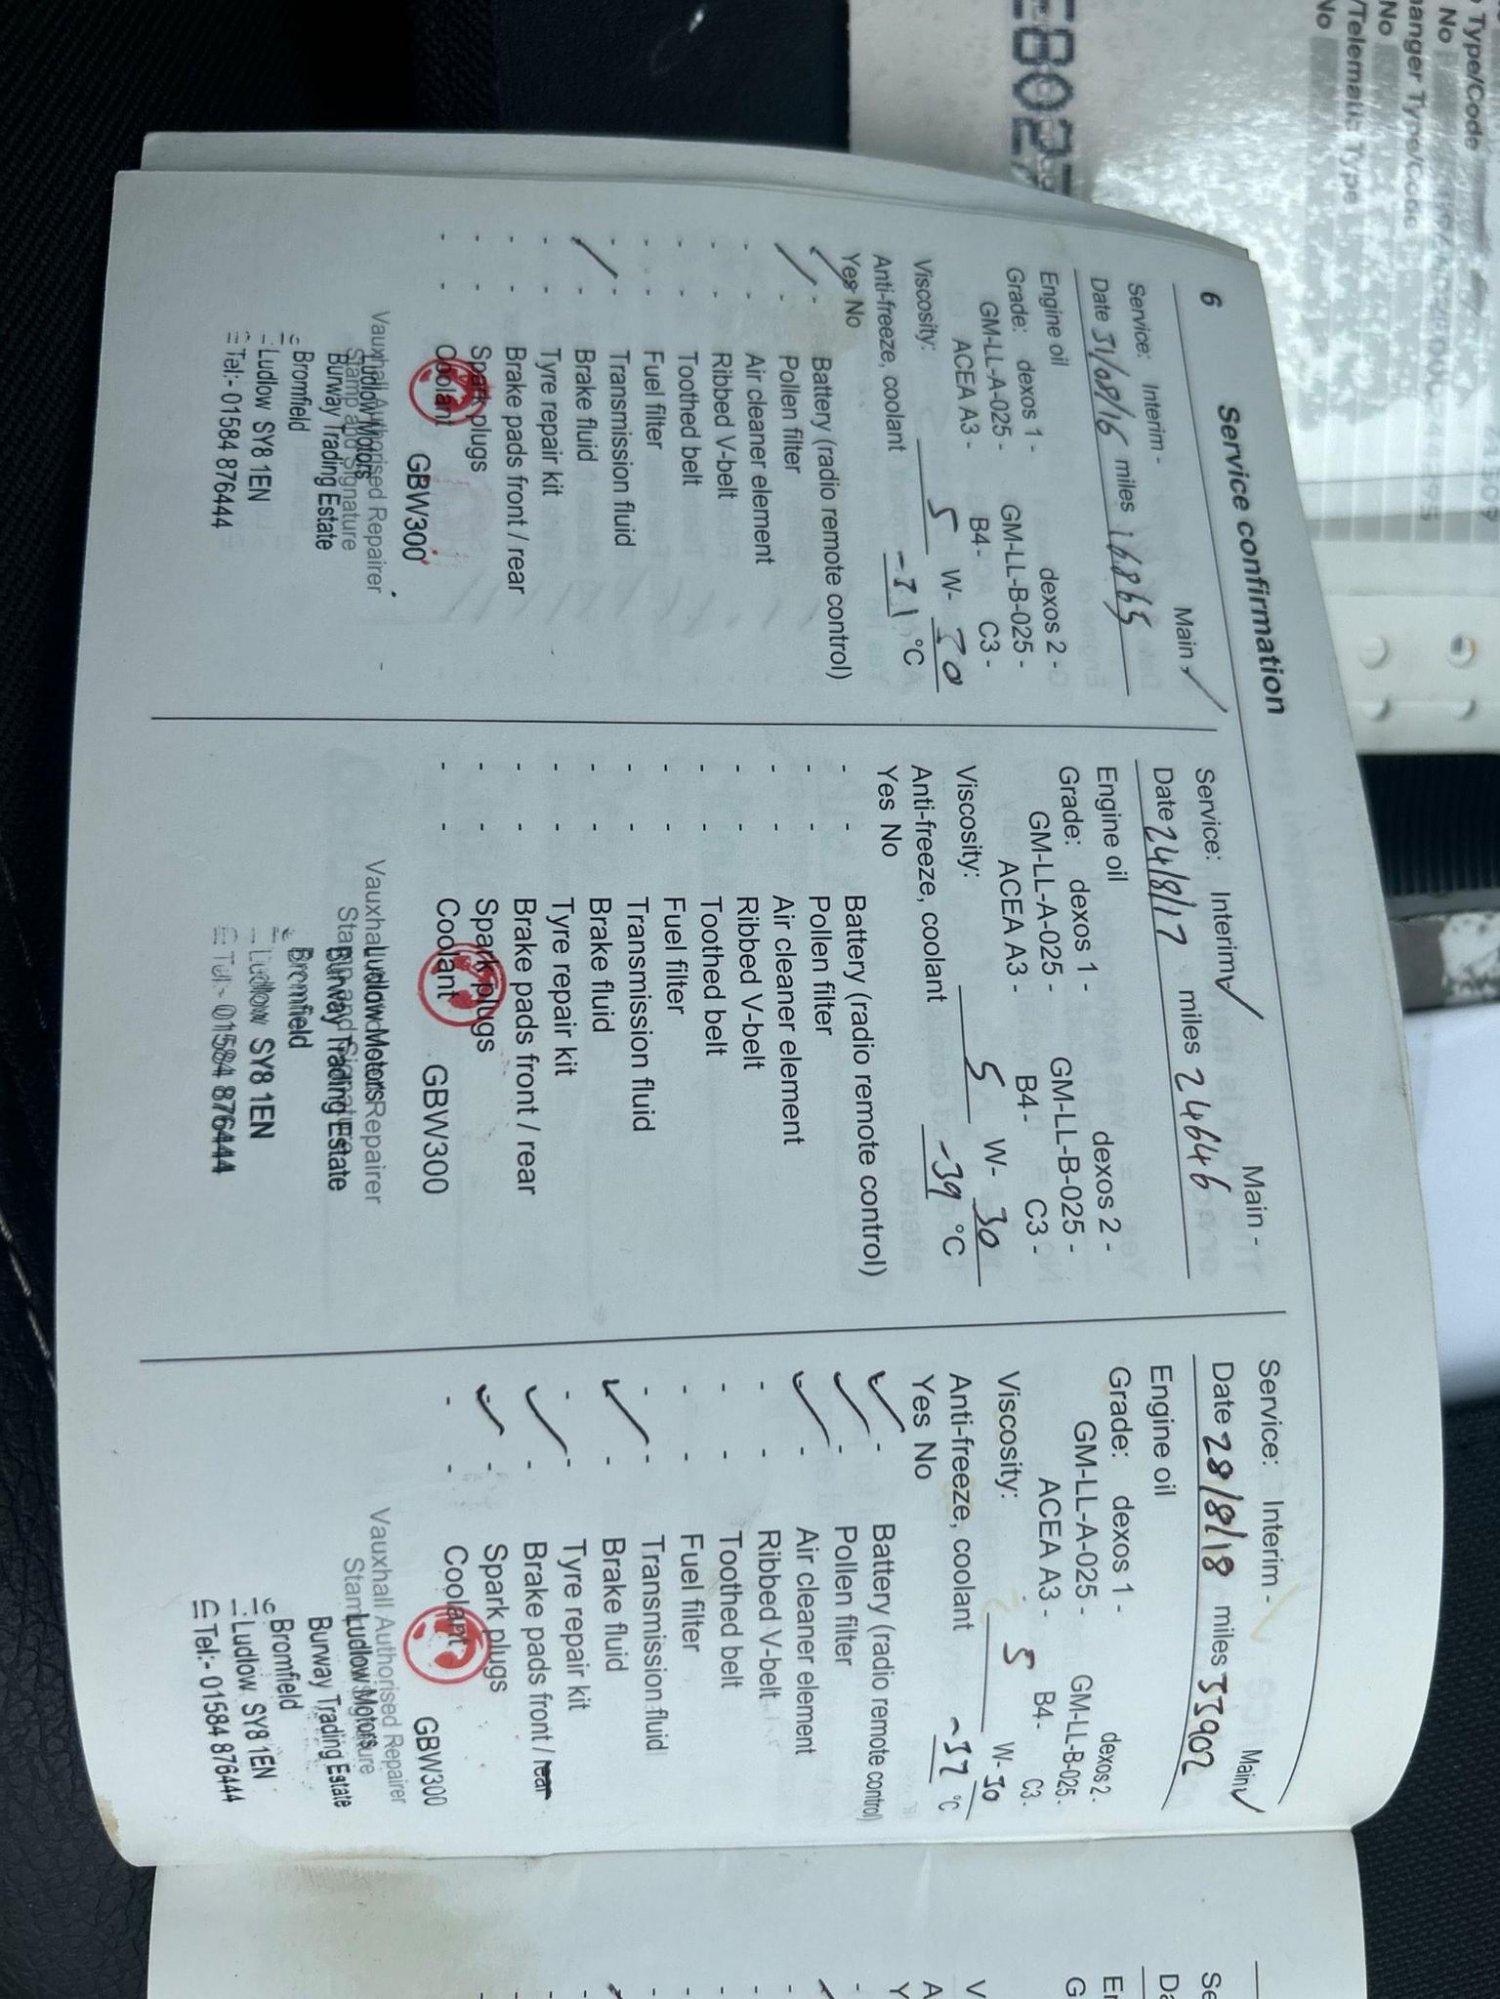 6 Service confirmation
Service: Interim - Main ✓
Date 31/08/16 miles 16865
Engine oil
Grade: dexos 1 - dexos 2 -
GM-LL-A-025 - GM-LL-B-025 -
ACEA A3 - B4 - C3 -
Viscosity: 5 W-
Anti-freeze, coolant °C
Yes No
✓ - Battery (radio remote control)
✓ - Pollen filter
- - Air cleaner element
- - Ribbed V-belt
- - Toothed belt
- - Fuel filter
- - Transmission fluid
✓ - Brake fluid
- - Tyre repair kit
- - Brake pads front / rear
- - Spark plugs
- - Coolant
GBW300
Vauxhall Authorised Repairer
Stamp and Signature
Ludlow Motors
Burway Trading Estate
Bromfield
Ludlow SY8 1EN
Tel:- 01584 876444
Service: Interim ✓ Main -
Date 24/8/17 miles 24646
Engine oil
Grade: dexos 1 - dexos 2 -
GM-LL-A-025 - GM-LL-B-025 -
ACEA A3 - B4 - C3 -
Viscosity: 5 W- 30
Anti-freeze, coolant -39 °C
Yes No
- - Battery (radio remote control)
- - Pollen filter
- - Air cleaner element
- - Ribbed V-belt
- - Toothed belt
- - Fuel filter
- - Transmission fluid
- - Brake fluid
- - Tyre repair kit
- - Brake pads front / rear
- - Spark plugs
- - Coolant
GBW300
Vauxhall Authorised Repairer
Stamp and Signature
Ludlow Motors
Burway Trading Estate
Bromfield
Ludlow SY8 1EN
Tel:- 01584 876444
Service: Interim - Main ✓
Date 28/8/18 miles 33902
Engine oil
Grade: dexos 1 - dexos 2 -
GM-LL-A-025 - GM-LL-B-025 -
ACEA A3 - B4 - C3 -
Viscosity: 5 W- 30
Anti-freeze, coolant -37 °C
Yes No
✓ - Battery (radio remote control)
✓ - Pollen filter
✓ - Air cleaner element
- - Ribbed V-belt
- - Toothed belt
- - Fuel filter
- - Transmission fluid
✓ - Brake fluid
- - Tyre repair kit
✓ - Brake pads front / rear
✓ - Spark plugs
- - Coolant
GBW300
Vauxhall Authorised Repairer
Ludlow Motors
Burway Trading Estate
Bromfield
Ludlow SY8 1EN
Tel:- 01584 876444
Type/Code
No
Type/Code
No
/Telematic Type
No